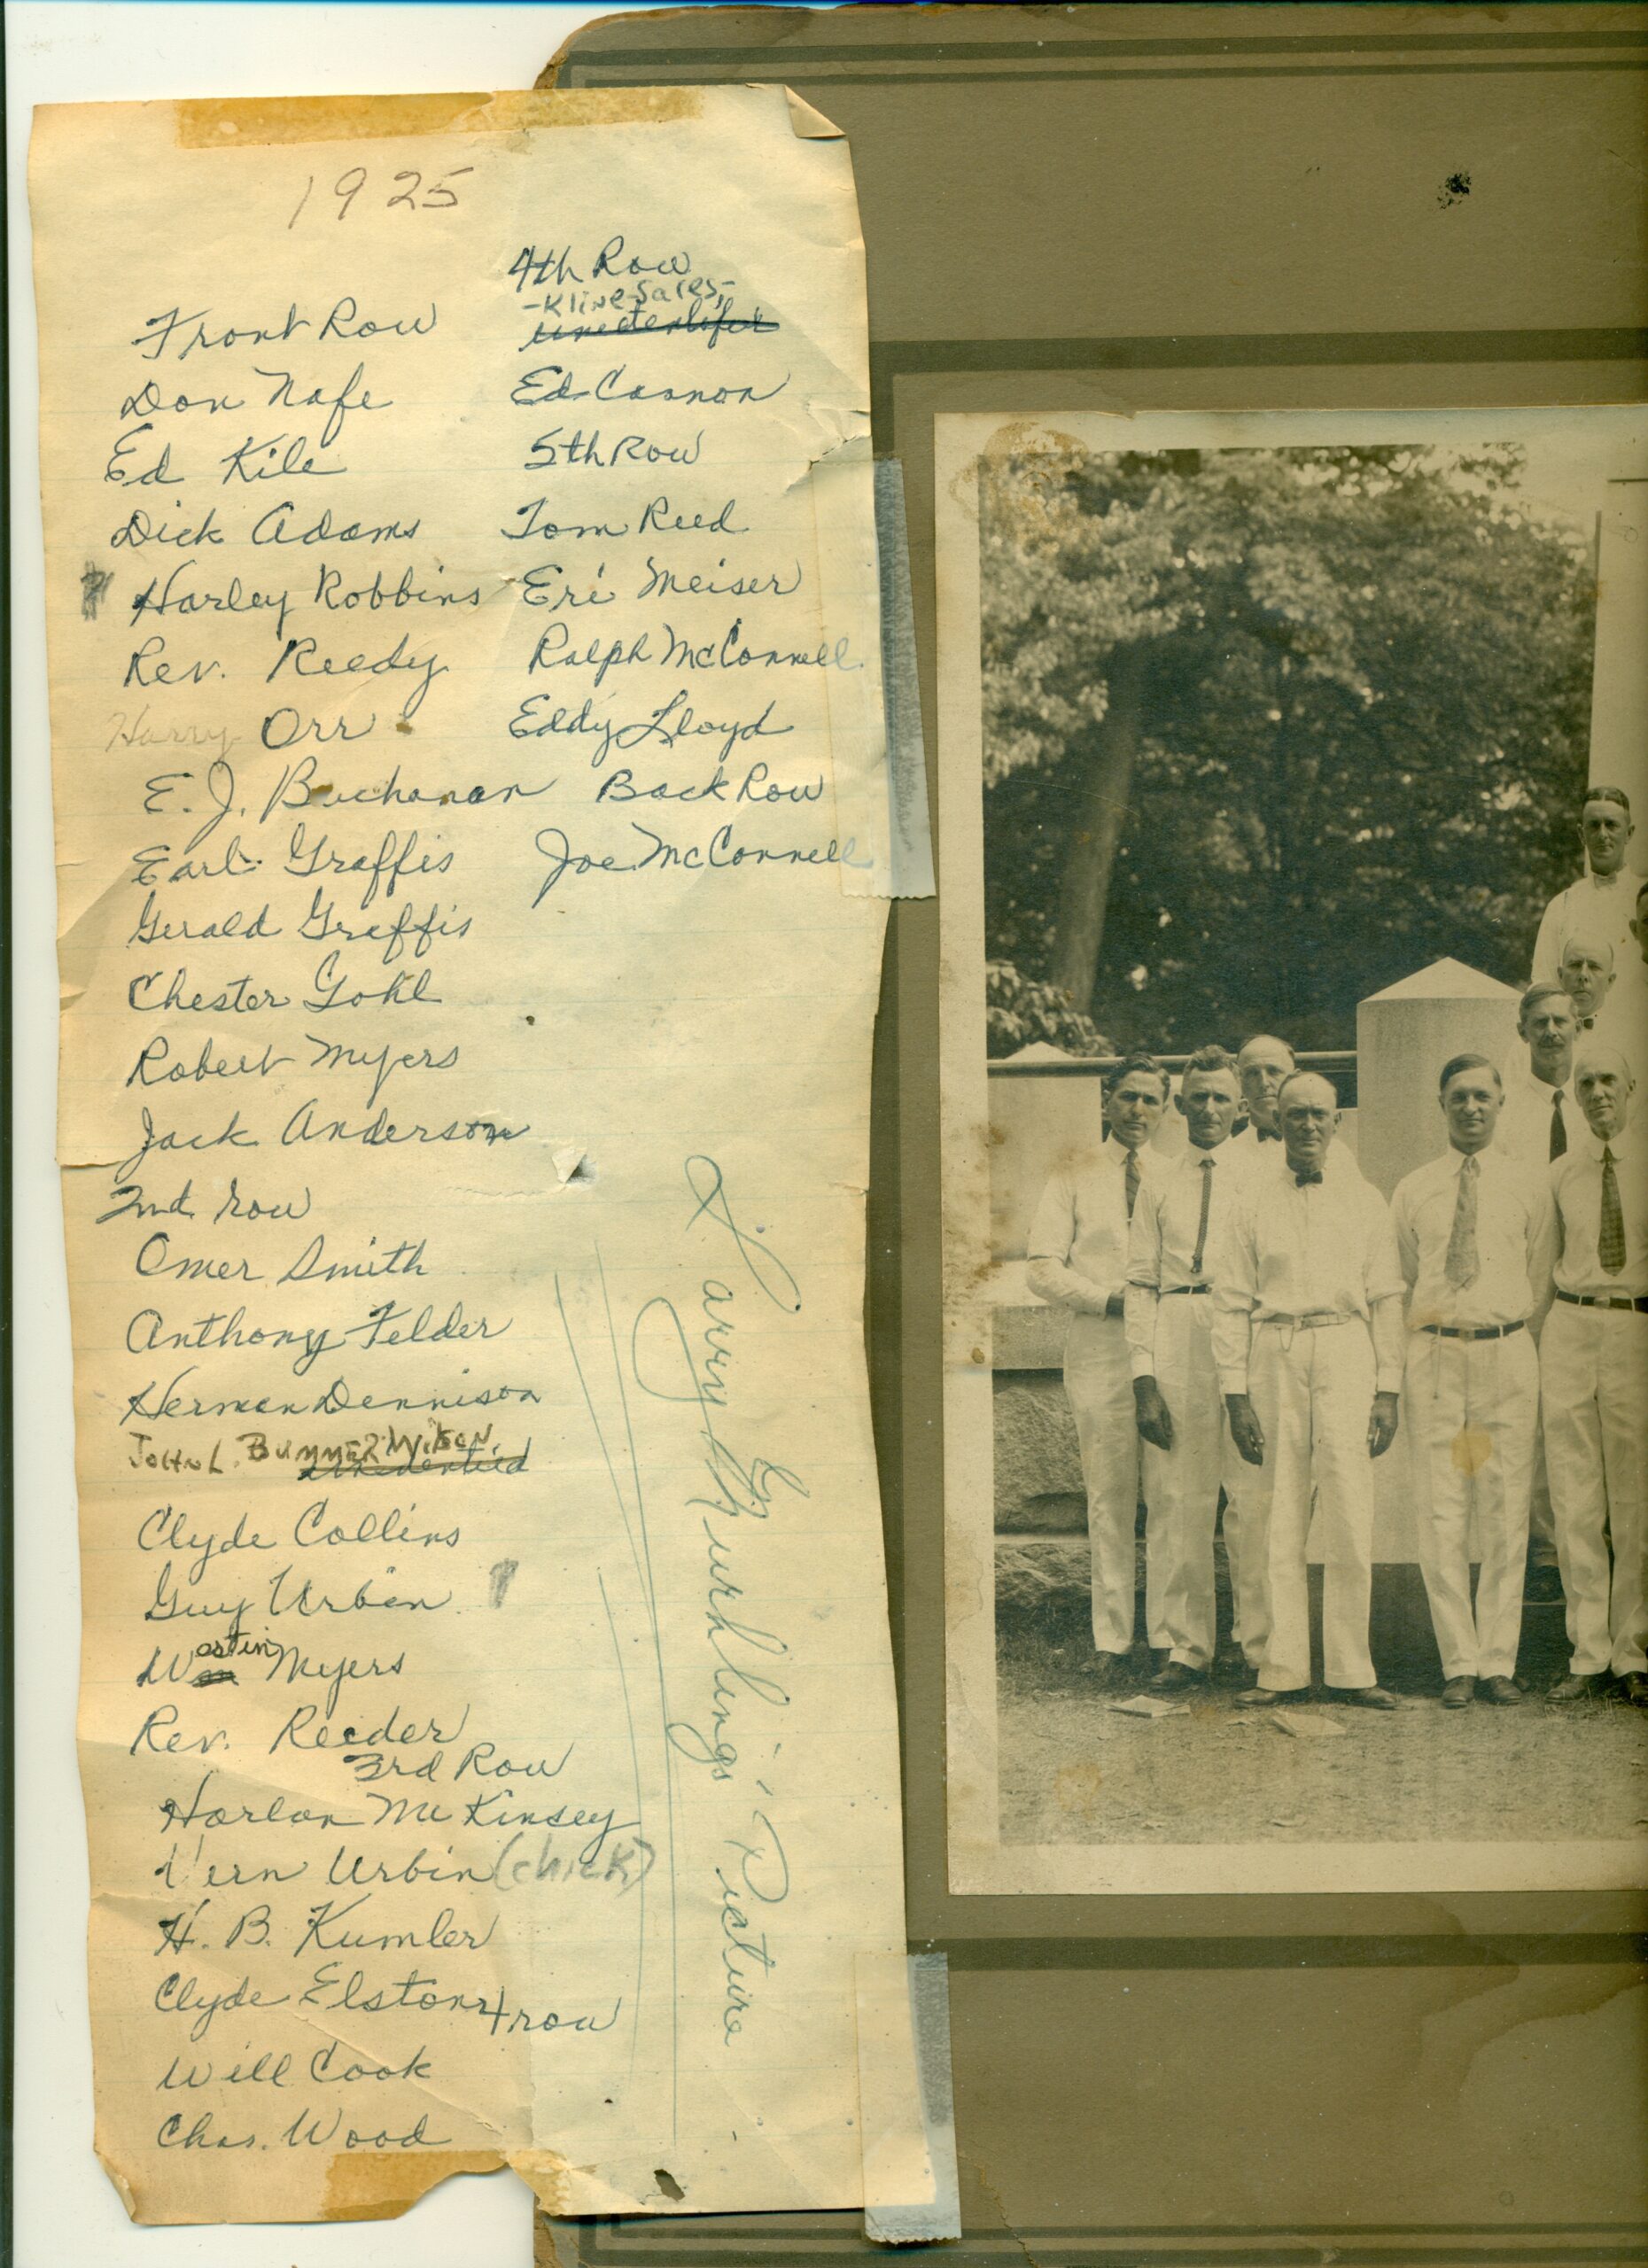 1925
Front Row
Don Nafe
Ed Kile
Dick Adams
Harley Robbins
Rev. Reedy
Harry Orr
E. J. Buchanan
Earl Graffis
Gerald Graffis
Chester Gohl
Robert Myers
Jack Anderson
2nd row
Omer Smith
Anthony Felder
Herman Dennison
John L. Bummer Wilson
Clyde Collins
Guy Urbin
Wastin Myers
Rev. Reeder
3rd Row
Harlan McKinsey
Vern Urbin (chick)
H. B. Kumler
Clyde Elston
4 row
Will Cook
Chas. Wood
4th Row
-Kline Sales,-
Ed Cannon
5th Row
Tom Reed
Eri Meiser
Ralph McConnell
Eddy Lloyd
Back Row
Joe McConnell
Larry Picture